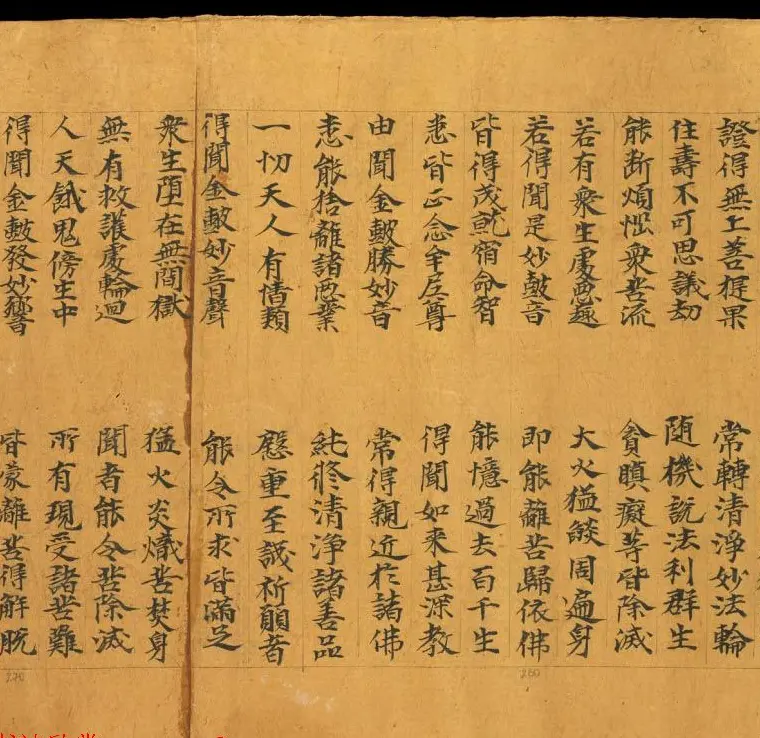 證得無上菩提果　常轉清淨妙法輪
住壽不可思議劫　随機說法利群生
能斷煩惱衆苦流　貪瞋癡等皆除滅
若有衆生處惡趣　大火猛燄周遍身
若得聞是妙鼓音　即能離苦歸依佛
皆得成就宿命智　能憶過去百千生
悉皆正念牟尼尊　得聞如来甚深教
由聞金鼓勝妙音　常得親近於諸佛
悉能捨離諸惡業　純修清淨諸善品
一切天人有情類　慇重至誠祈願者
得聞金鼓妙音聲　能令所求皆滿足
衆生墮在無間獄　猛火炎熾苦焚身
無有救護處輪迴　聞者能令苦除滅
人天餓鬼傍生中　所有現受諸苦難
得聞金鼓發妙響　皆蒙離苦得解脫
260
270